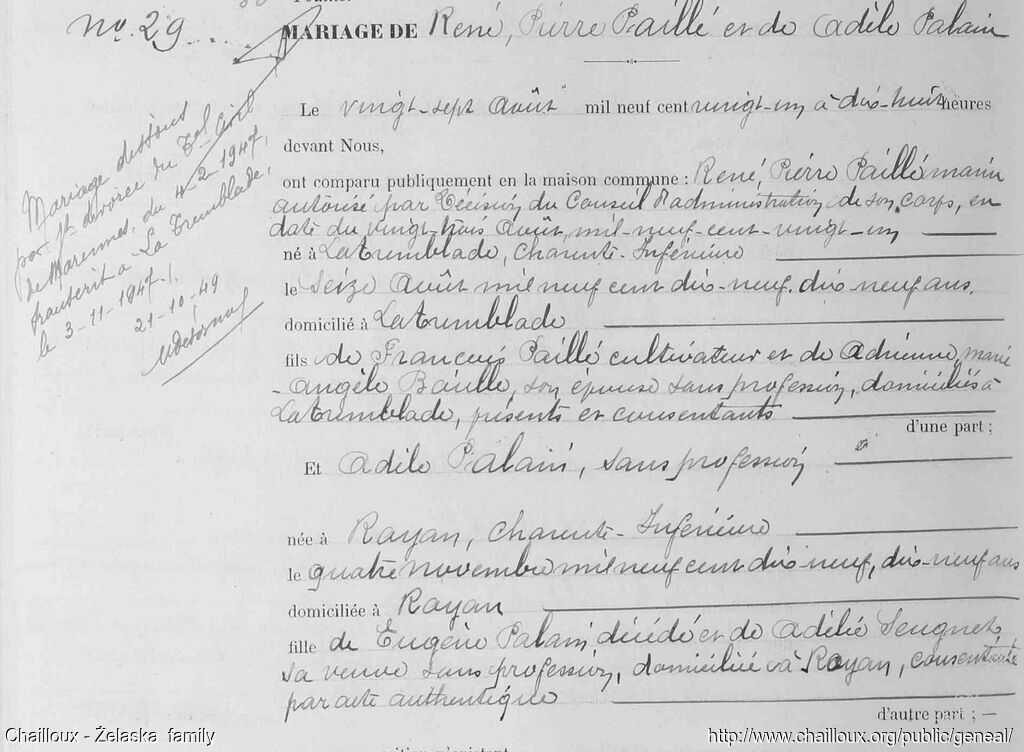 no. 29
MARIAGE DE René, Pierre Paillé et de Adèle Palain
Le vingt-sept Août mil neuf cent vingt-un à dix-huit heures
devant Nous,
ont comparu publiquement en la maison commune : René, Pierre Paillé marin
autorisé par Décision du Conseil d'administration de son corps, en
date du vingt-trois Août, mil-neuf-cent-vingt-un
né à La Tremblade, Charente-Inférieure
le Seize Août mil neuf cent dix-neuf. dix-neuf ans.
domicilié à La Tremblade
fils de François Paillé cultivateur et de Adrienne, marie
-Angèle Baille, son épouse sans profession, domiciliés à
La Tremblade, présents et consentants
d'une part ;
Et Adèle Palain, sans profession
née à Royan, Charente-Inférieure
le quatre novembre mil neuf cent dix neuf, dix-neuf ans
domiciliée à Royan
fille de Eugène Palain, décédé et de Adélie Seugnet,
sa veuve sans profession, domiciliée à Royan, consentante
par acte authentique
d'autre part ; —
Mariage dissous
par jt divorce du Tal Civil
de Marennes, du 4-2-1947,
transcrit à La Tremblade,
le 3-11-1947.
21-10-49
Chailloux - Želaska family
http://www.chailloux.org/public/geneal/